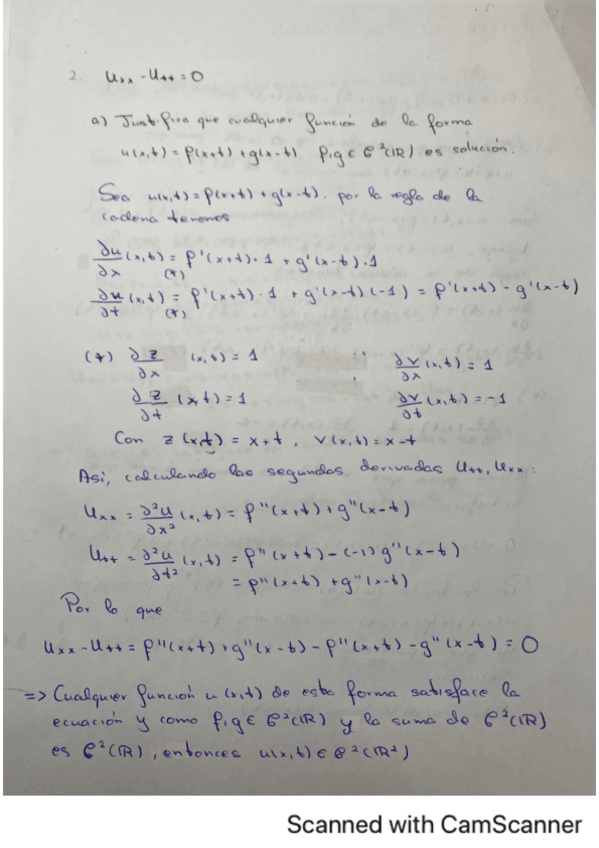 2. Uxx - Utt = 0
a) Justifica que cualquier función de la forma
u(x,t) = f(x+t) + g(x-t) f,g ∈ C²(ℝ) es solución.
Sea u(x,t) = f(x+t) + g(x-t), por la regla de la
cadena tenemos
∂u/∂x (x,t) = f'(x+t)·1 + g'(x-t)·1
(*)
∂u/∂t (x,t) = f'(x+t)·1 + g'(x-t)(-1) = f'(x+t) - g'(x-t)
(*)
(*) ∂z/∂x (x,t) = 1 ∂v/∂x (x,t) = 1
∂z/∂t (x,t) = 1 ∂v/∂t (x,t) = -1
Con z(x,t) = x+t, v(x,t) = x-t
Así, calculando las segundas derivadas Utt, Uxx:
Uxx = ∂²u/∂x² (x,t) = f''(x+t) + g''(x-t)
Utt = ∂²u/∂t² (x,t) = f''(x+t) - (-1) g''(x-t)
= f''(x+t) + g''(x-t)
Por lo que
Uxx - Utt = f''(x+t) + g''(x-t) - f''(x+t) - g''(x-t) = 0
=> Cualquier función u(x,t) de esta forma satisface la
ecuación y como f,g ∈ C²(ℝ) y la suma de C²(ℝ)
es C²(ℝ), entonces u(x,t) ∈ C²(ℝ²)
Scanned with CamScanner